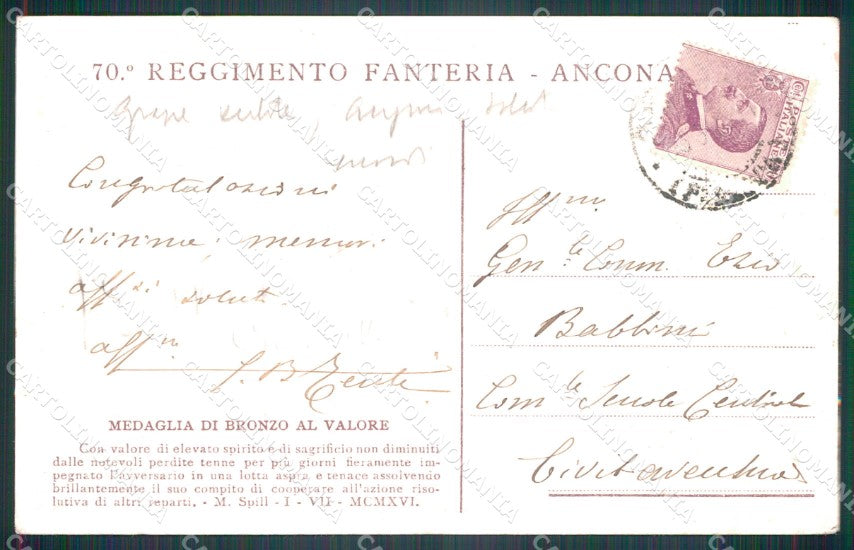 70.º REGGIMENTO FANTERIA - ANCONA
POSTE ITALIANE
Congratulazioni
vivissime memori
aff.si saluti
aff.mo
MEDAGLIA DI BRONZO AL VALORE
Con valore di elevato spirito e di sagrificio non diminuiti
dalle notevoli perdite tenne per più giorni fieramente im-
pegnato l'avversario in una lotta aspra e tenace assolvendo
brillantemente il suo compito di cooperare all'azione riso-
lutiva di altri reparti. - M. Spill - I - VII - MCMXVI.
Gen.le Comm. Ezio
Babbini
Com.te Scuole Centrali
Civitavecchia
CARTOLINOMANIA